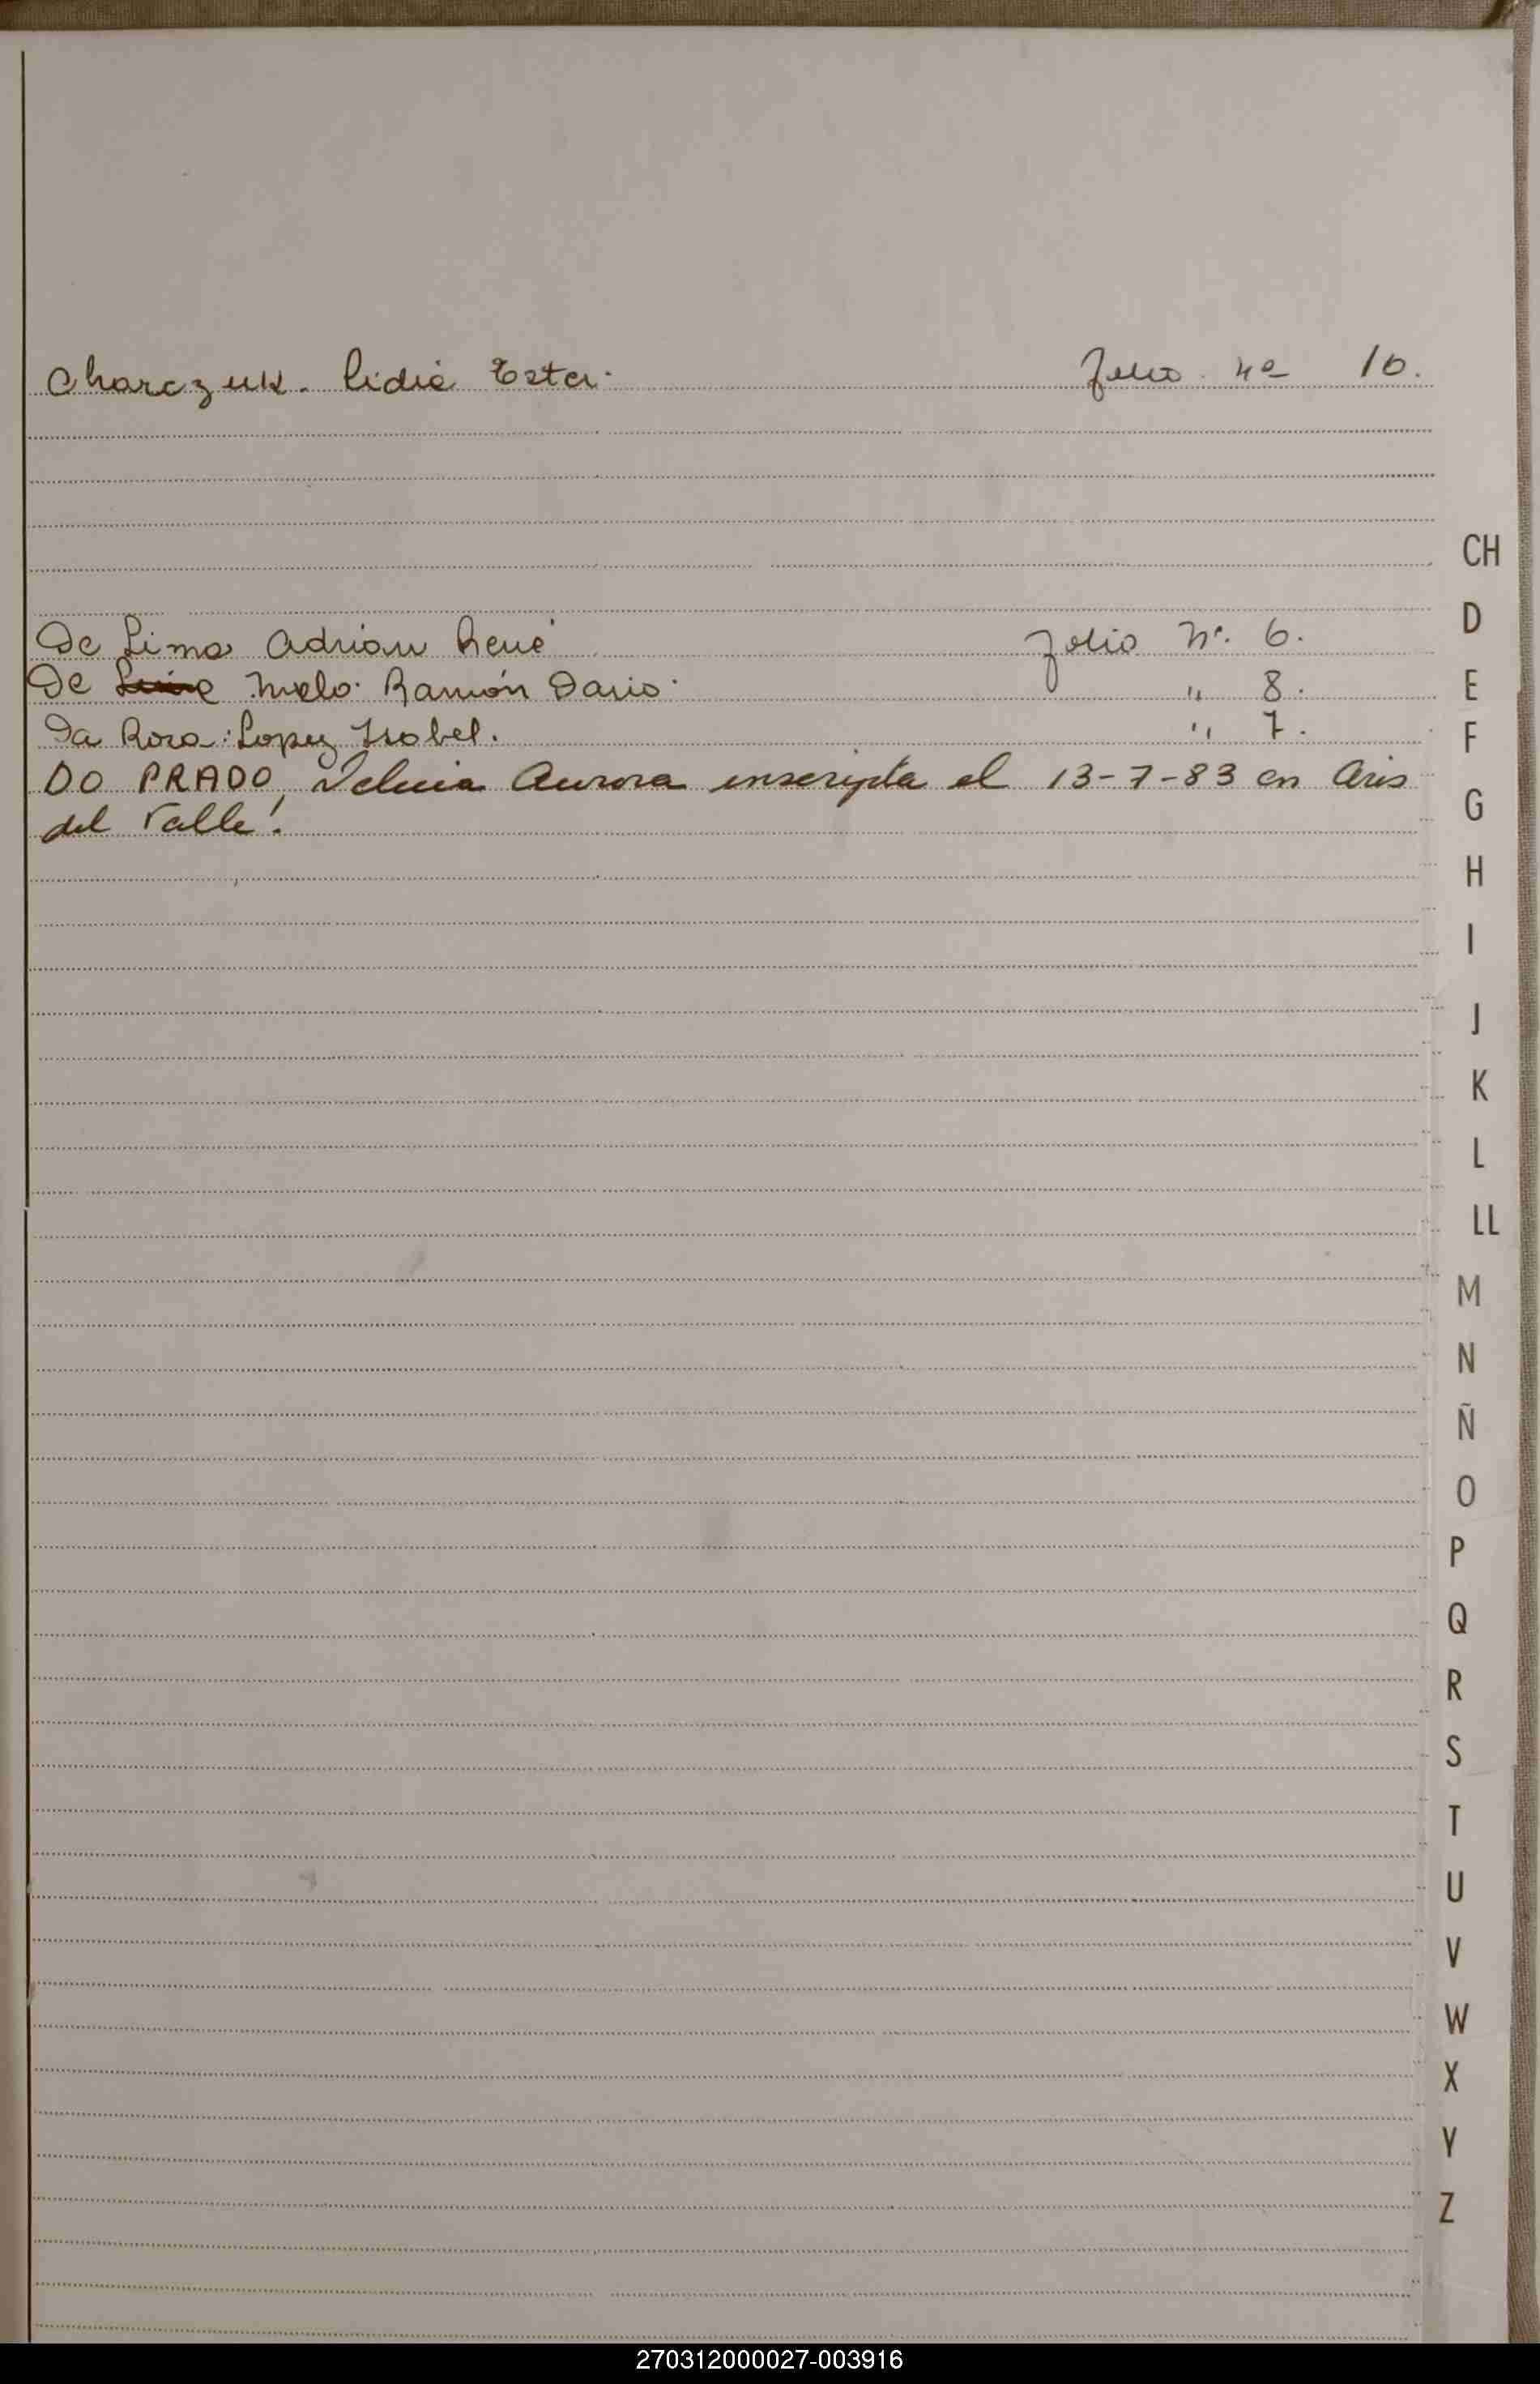 Charczuk. Lidia Ester. Folio nº 10.
CH
D
De Lima Adrian René Folio Nº. 6.
De Melo. Ramón Dario. " 8.
E
Da Rosa: Lopez Isabel. " 7.
F
DO PRADO, Aurora inscripta el 13-7-83 en Aris
del Valle.
G
H
I
J
K
L
LL
M
N
Ñ
O
P
Q
R
S
T
U
V
W
X
Y
Z
270312000027-003916